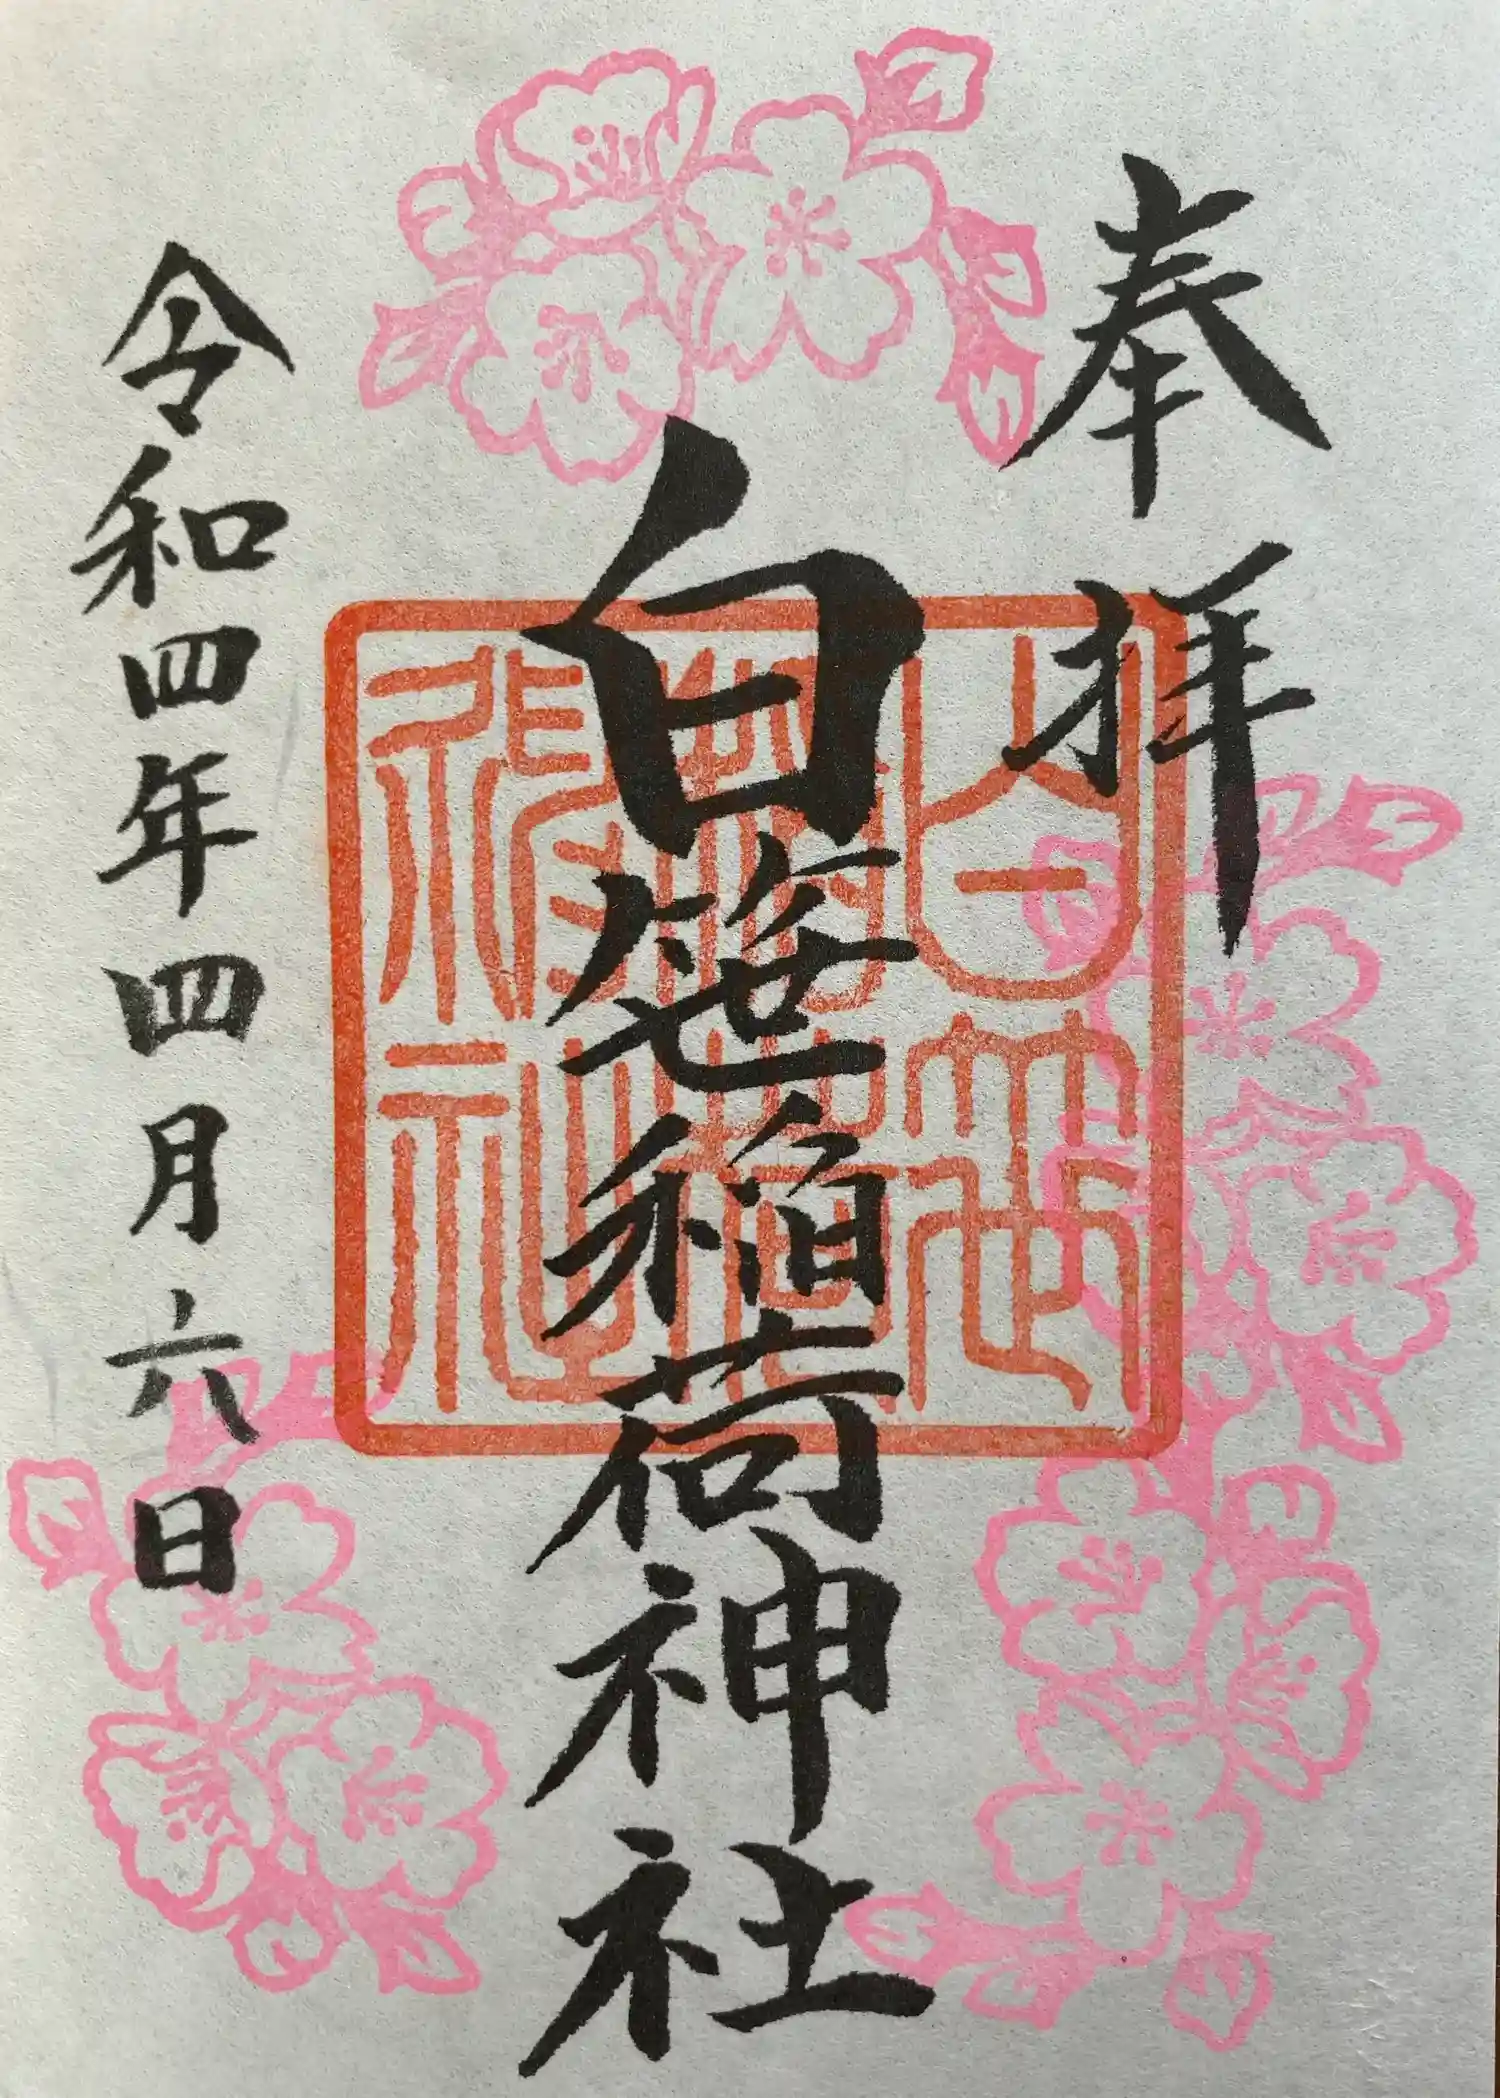 奉拝
白笹稲荷神社
令和四年四月六日
白笹
稲荷
神社